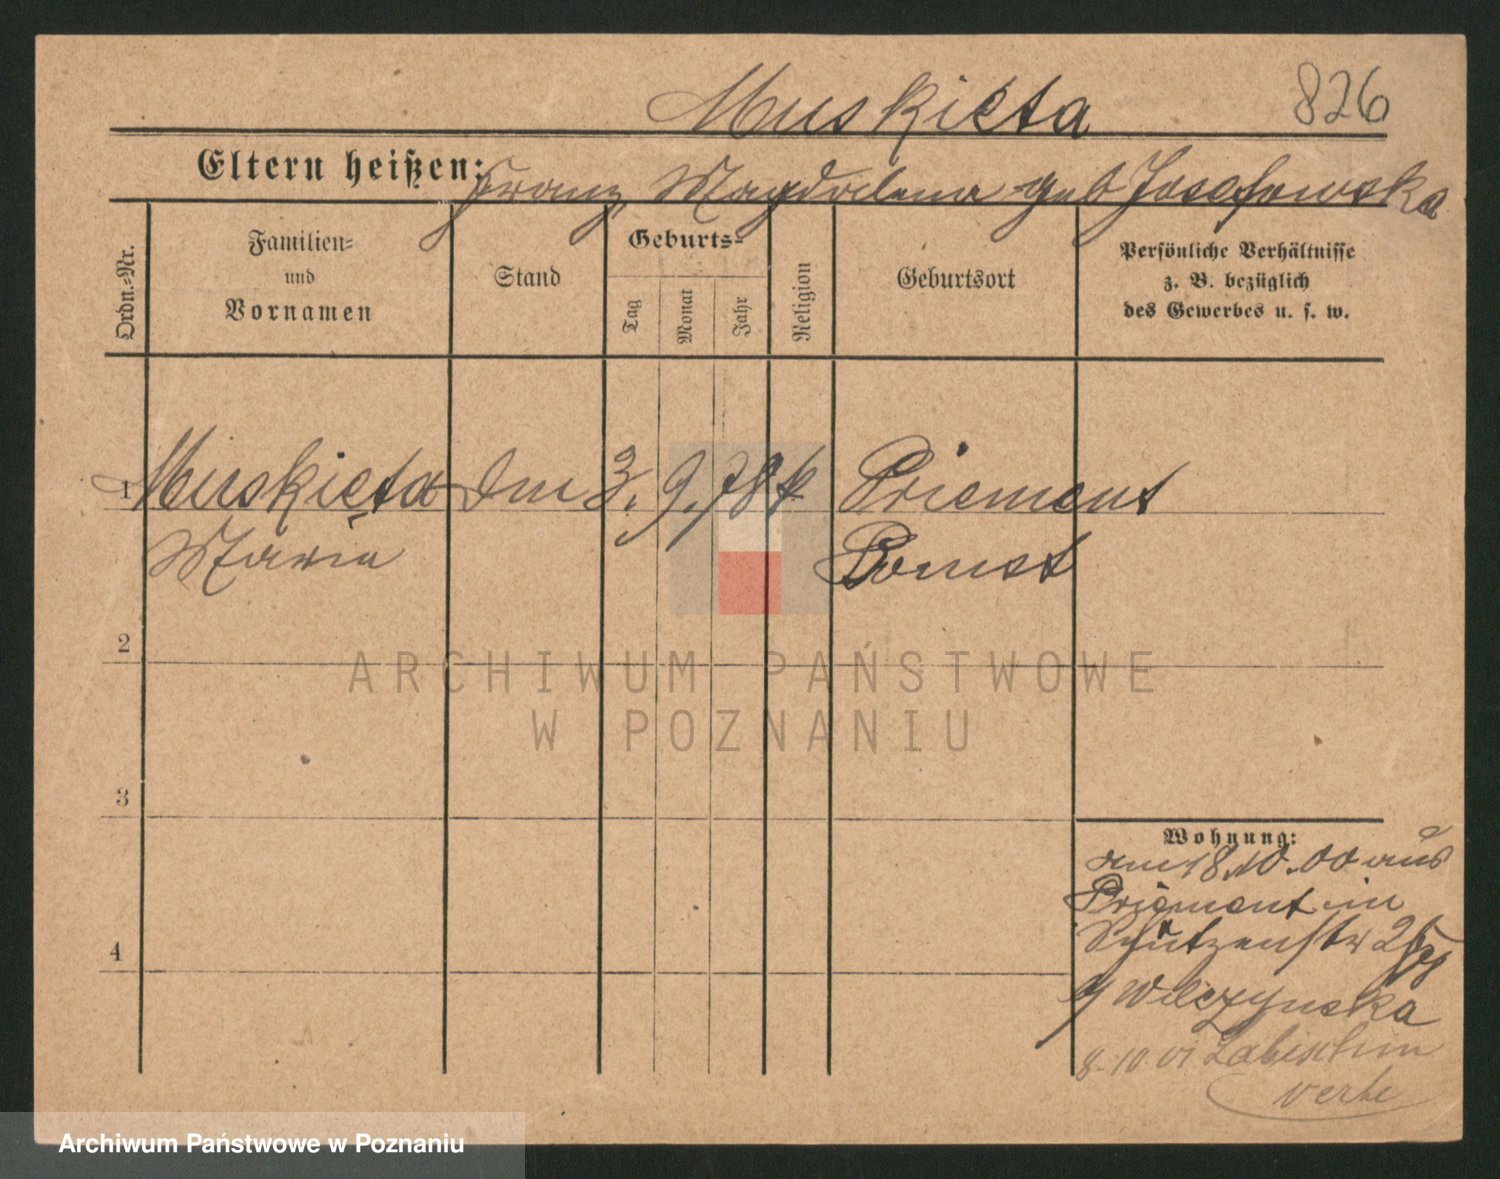 Muskieta
826
Eltern heißen: Franz, Magdalena geb Josefowska
Ordn.-Nr.
Familien-
und
Vornamen
Stand
Geburts-
Tag
Monat
Jahr
Religion
Geburtsort
Persönliche Verhältnisse
z. B. bezüglich
des Gewerbes u. s. w.
1 Muskieta 3. 9. 78 k Priement
Maria Bomst
2
ARCHIWUM PAŃSTWOWE
W POZNANIU
3
4
Wohnung:
am 18.10.00 aus
Priement in
Schützenstr 25
Wilczynska
8.10.01 Labischin
Archiwum Państwowe w Poznaniu